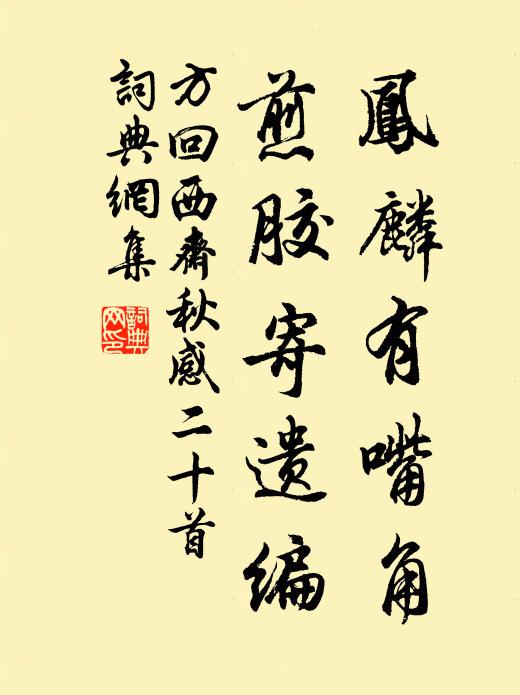 鳳麟有嘴角
煎膠寄遺编
方回西齋秋感二十首
詞典網集
詞典网印